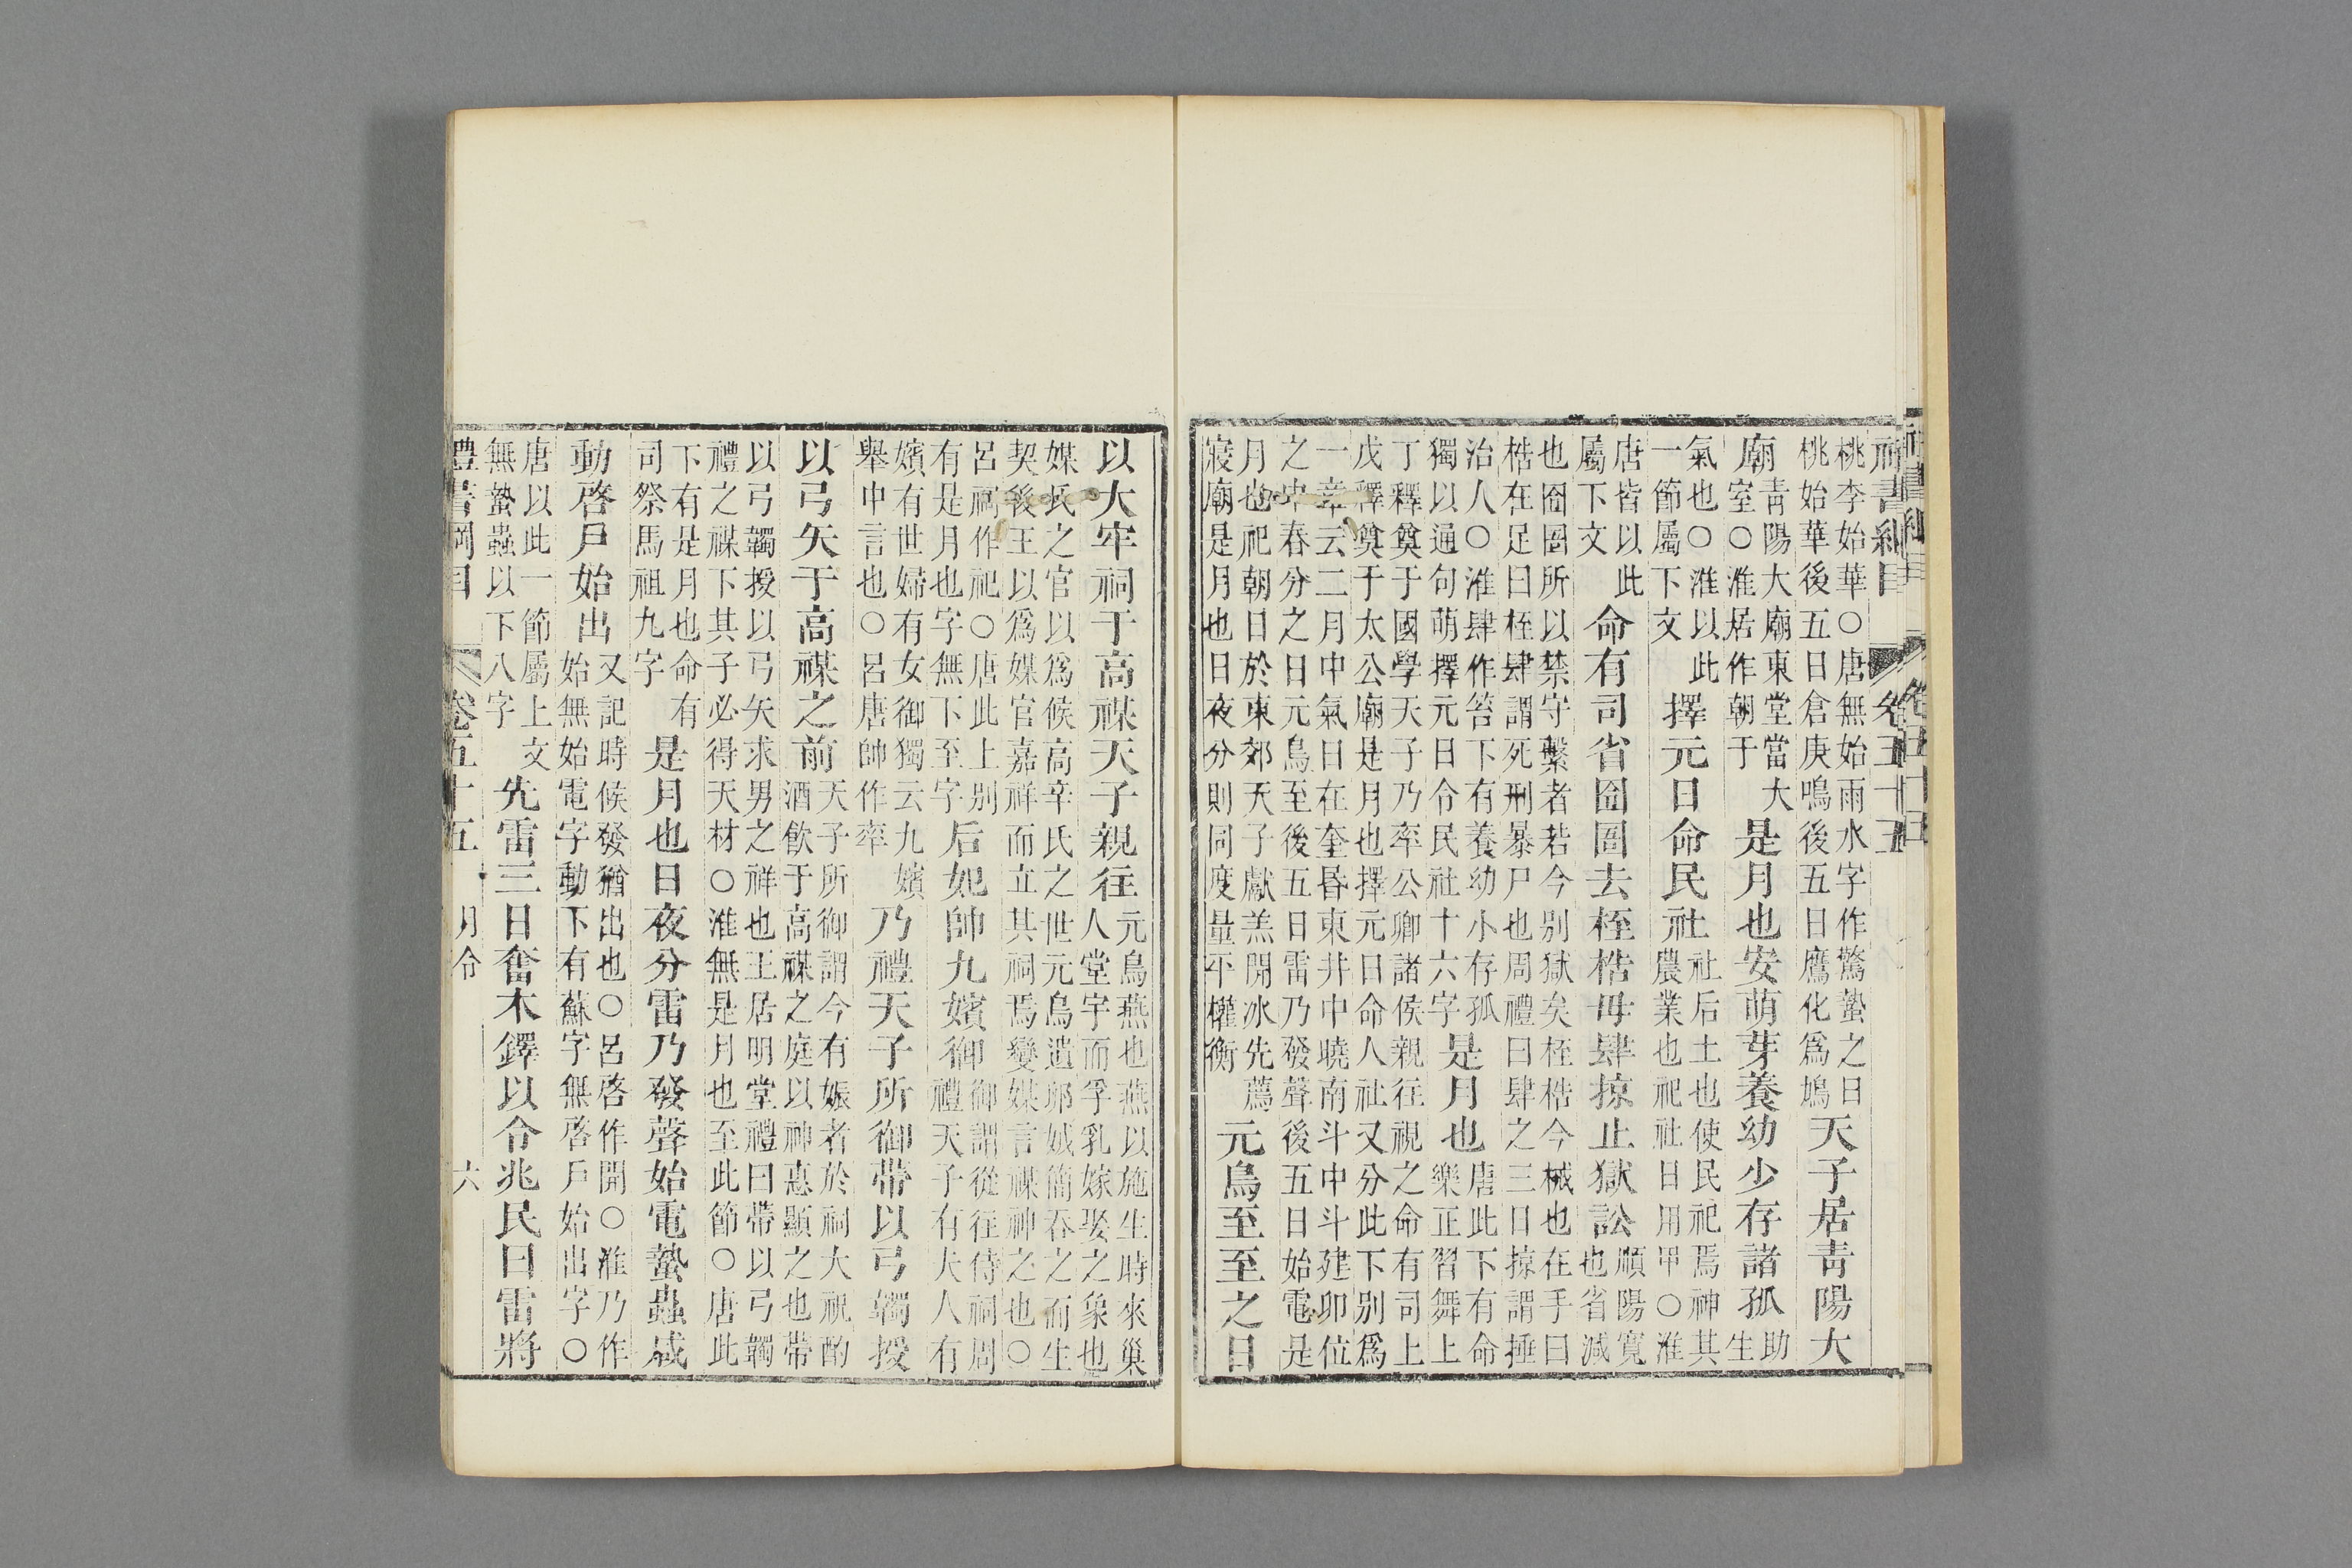 禮書綱目 卷五十五
桃李始華○唐無始雨水字作驚蟄之日
桃始華後五日倉庚鳴後五日鷹化爲鳩天子居青陽大
廟青陽大廟東堂當大
室○淮居作朝于是月也安萌芽養幼少存諸孤助
生
氣也○淮以此
一節屬下文擇元日命民社社后土也使民祀焉神其
農業也祀社日用甲○淮
唐皆以此
屬下文命有司省囹圄去桎梏毋肆掠止獄訟順陽寬
也省減
也囹圄所以禁守繫者若今別獄矣桎梏今械也在手曰
梏在足曰桎肆謂死刑暴尸也周禮曰肆之三日掠謂捶
治人○淮肆作笞下有養幼小存孤
獨以通句萌擇元日令民社十六字是月也唐此下有命
樂正習舞上
丁釋奠于國學天子乃率公卿諸侯親往視之命有司上
戊釋奠于太公廟是月也擇元日命人社又分此下別爲
一章云二月中氣日在奎昏東井中曉南斗中斗建卯位
之中春分之日元鳥至後五日雷乃發聲後五日始電是
月也祀朝日於東郊天子獻羔開冰先薦
寢廟是月也日夜分則同度量平權衡元鳥至至之日
以大牢祠于高禖天子親往元鳥燕也燕以施生時來巢
人堂宇而孚乳嫁娶之象也
媒氏之官以爲候高辛氏之世元鳥遺卵娀簡吞之而生
契後王以爲媒官嘉祥而立其祠焉變媒言禖神之也○
呂祠作祀○唐此上別
有是月也字無下至字后妃帥九嬪御御謂從往侍祠周
禮天子有夫人有
嬪有世婦有女御獨云九嬪
舉中言也○呂唐帥作率乃禮天子所御帶以弓韣授
以弓矢于高禖之前天子所御謂今有娠者於祠大祝酌
酒飲于高禖之庭以神惠顯之也帶
以弓韣授以弓矢求男之祥也王居明堂禮曰帶以弓韣
禮之禖下其子必得天材○淮無是月也至此節○唐此
下有是月也命有
司祭馬祖九字是月也日夜分雷乃發聲始電蟄蟲咸
動啓戶始出又記時候發猶出也○呂啓作開○淮乃作
始無始電字動下有蘇字無啓戶始出字○
唐以此一節屬上文
無蟄蟲以下八字先雷三日奮木鐸以令兆民曰雷將
禮書綱目 卷五十五 月令 六